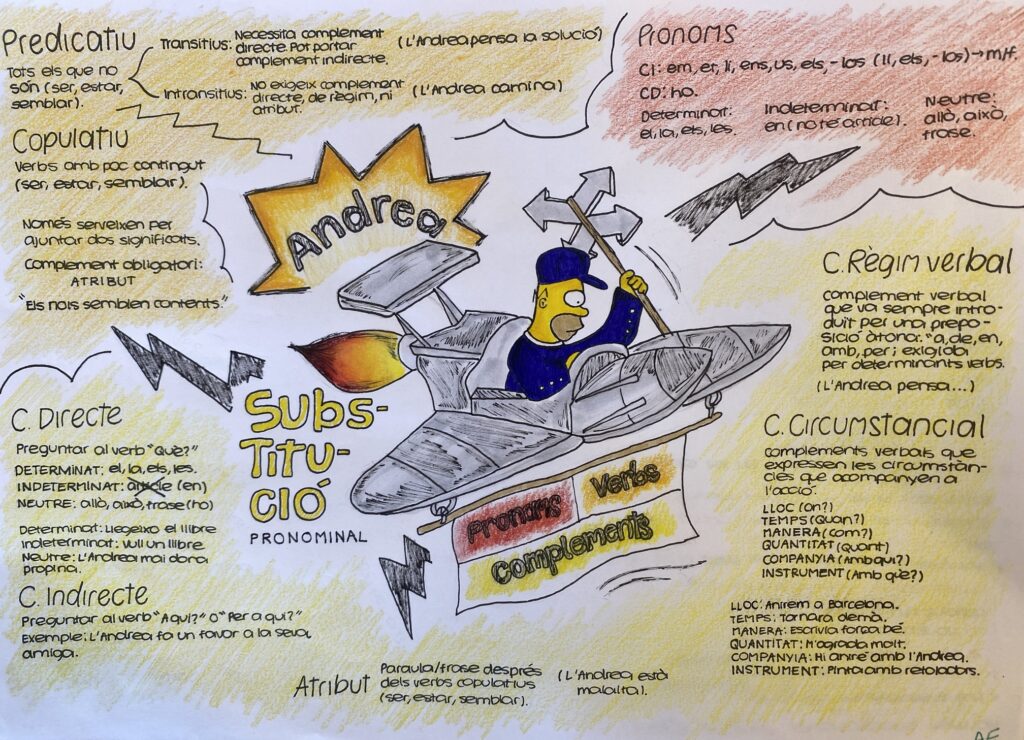 Predicatiu
Tots els que no
són (ser, estar,
semblar).
Transitius: Necessita complement
directe. Pot portar
complement indirecte.
(L'Andrea pensa la solució)
Intransitius: No exigeix complement
directe, de règim, ni
atribut.
(L'Andrea camina)
Pronoms
CI: em, et, li, ens, us, els, -los (li, els, -los) → m/f.
CD: ho.
Determinat:
el, la, els, les.
Indeterminat:
en (no té article).
Neutre:
allò, això,
frase.
Copulatiu
Verbs amb poc contingut
(ser, estar, semblar).
Només serveixen per
ajuntar dos significats.
Complement obligatori:
ATRIBUT
"Els nois semblen contents."
Andrea
C. Règim verbal
Complement verbal
que va sempre intro-
duït per una prepo-
sició àtona: "a, de, en,
amb, per i exigida
per determinants verbs.
(L'Andrea pensa...)
Subs-
titu-
ció
PRONOMINAL
Pronoms
Verbs
Complements
C. Directe
Preguntar al verb "Què?"
DETERMINAT: el, la, els, les.
INDETERMINAT: article (en)
NEUTRE: allò, això, frase (ho)
Determinat: Llegeixo el llibre
Indeterminat: vull un llibre
Neutre: L'Andrea mai dona
propina.
C. Indirecte
Preguntar al verb "A qui?" O "Per a qui?"
Exemple: L'Andrea fa un favor a la seva
amiga.
C. Circumstancial
Complements verbals que
expressen les circumstàn-
cies que acompanyen a
l'acció.
LLOC (on?)
TEMPS (Quan?)
MANERA (com?)
QUANTITAT (Quant)
COMPANYIA (Amb qui?)
INSTRUMENT (Amb què?)
LLOC: Anirem a Barcelona.
TEMPS: Tornarà demà.
MANERA: Escrivia força bé.
QUANTITAT: M'agrada molt.
COMPANYIA: Hi aniré amb l'Andrea.
INSTRUMENT: Pinta amb retoladors.
Atribut
Paraula/frase després
dels verbs copulatius
(ser, estar, semblar).
(L'Andrea està
malalta).